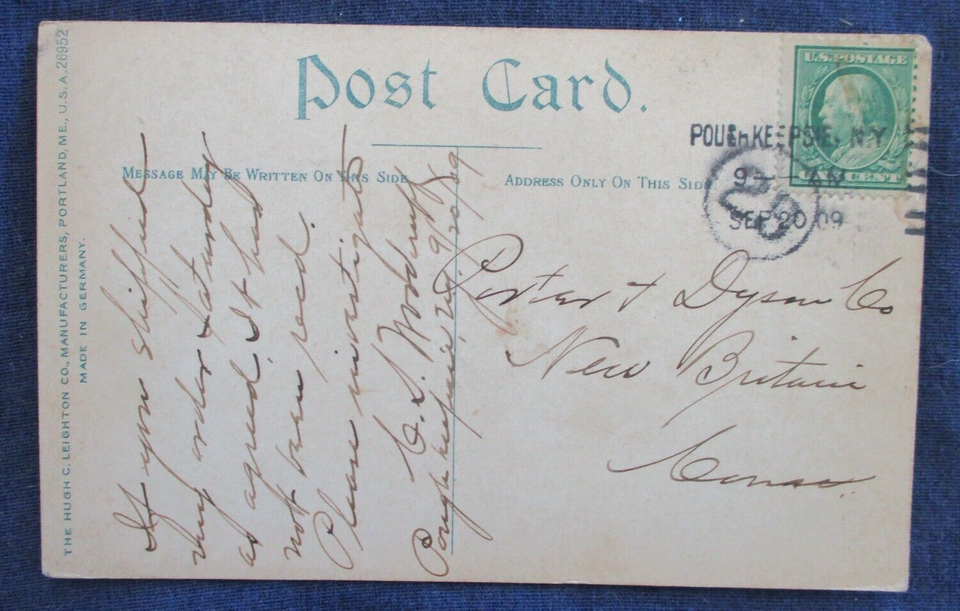 THE HUGH C. LEIGHTON CO., MANUFACTURERS, PORTLAND, ME., U.S.A. 26952
MADE IN GERMANY.
Post Card.
MESSAGE MAY BE WRITTEN ON THIS SIDE
ADDRESS ONLY ON THIS SIDE
U.S. POSTAGE
CENT
POUGHKEEPSIE, N.Y.
9 - AM
SEP 20 09
If you shipped
my order Saturday
as agreed. It has
not been recd.
Please investigate
C. S. Woodruff
Poughkeepsie, N.Y. 9/20/09
Porter & Dyson Co
New Britain
Conn.